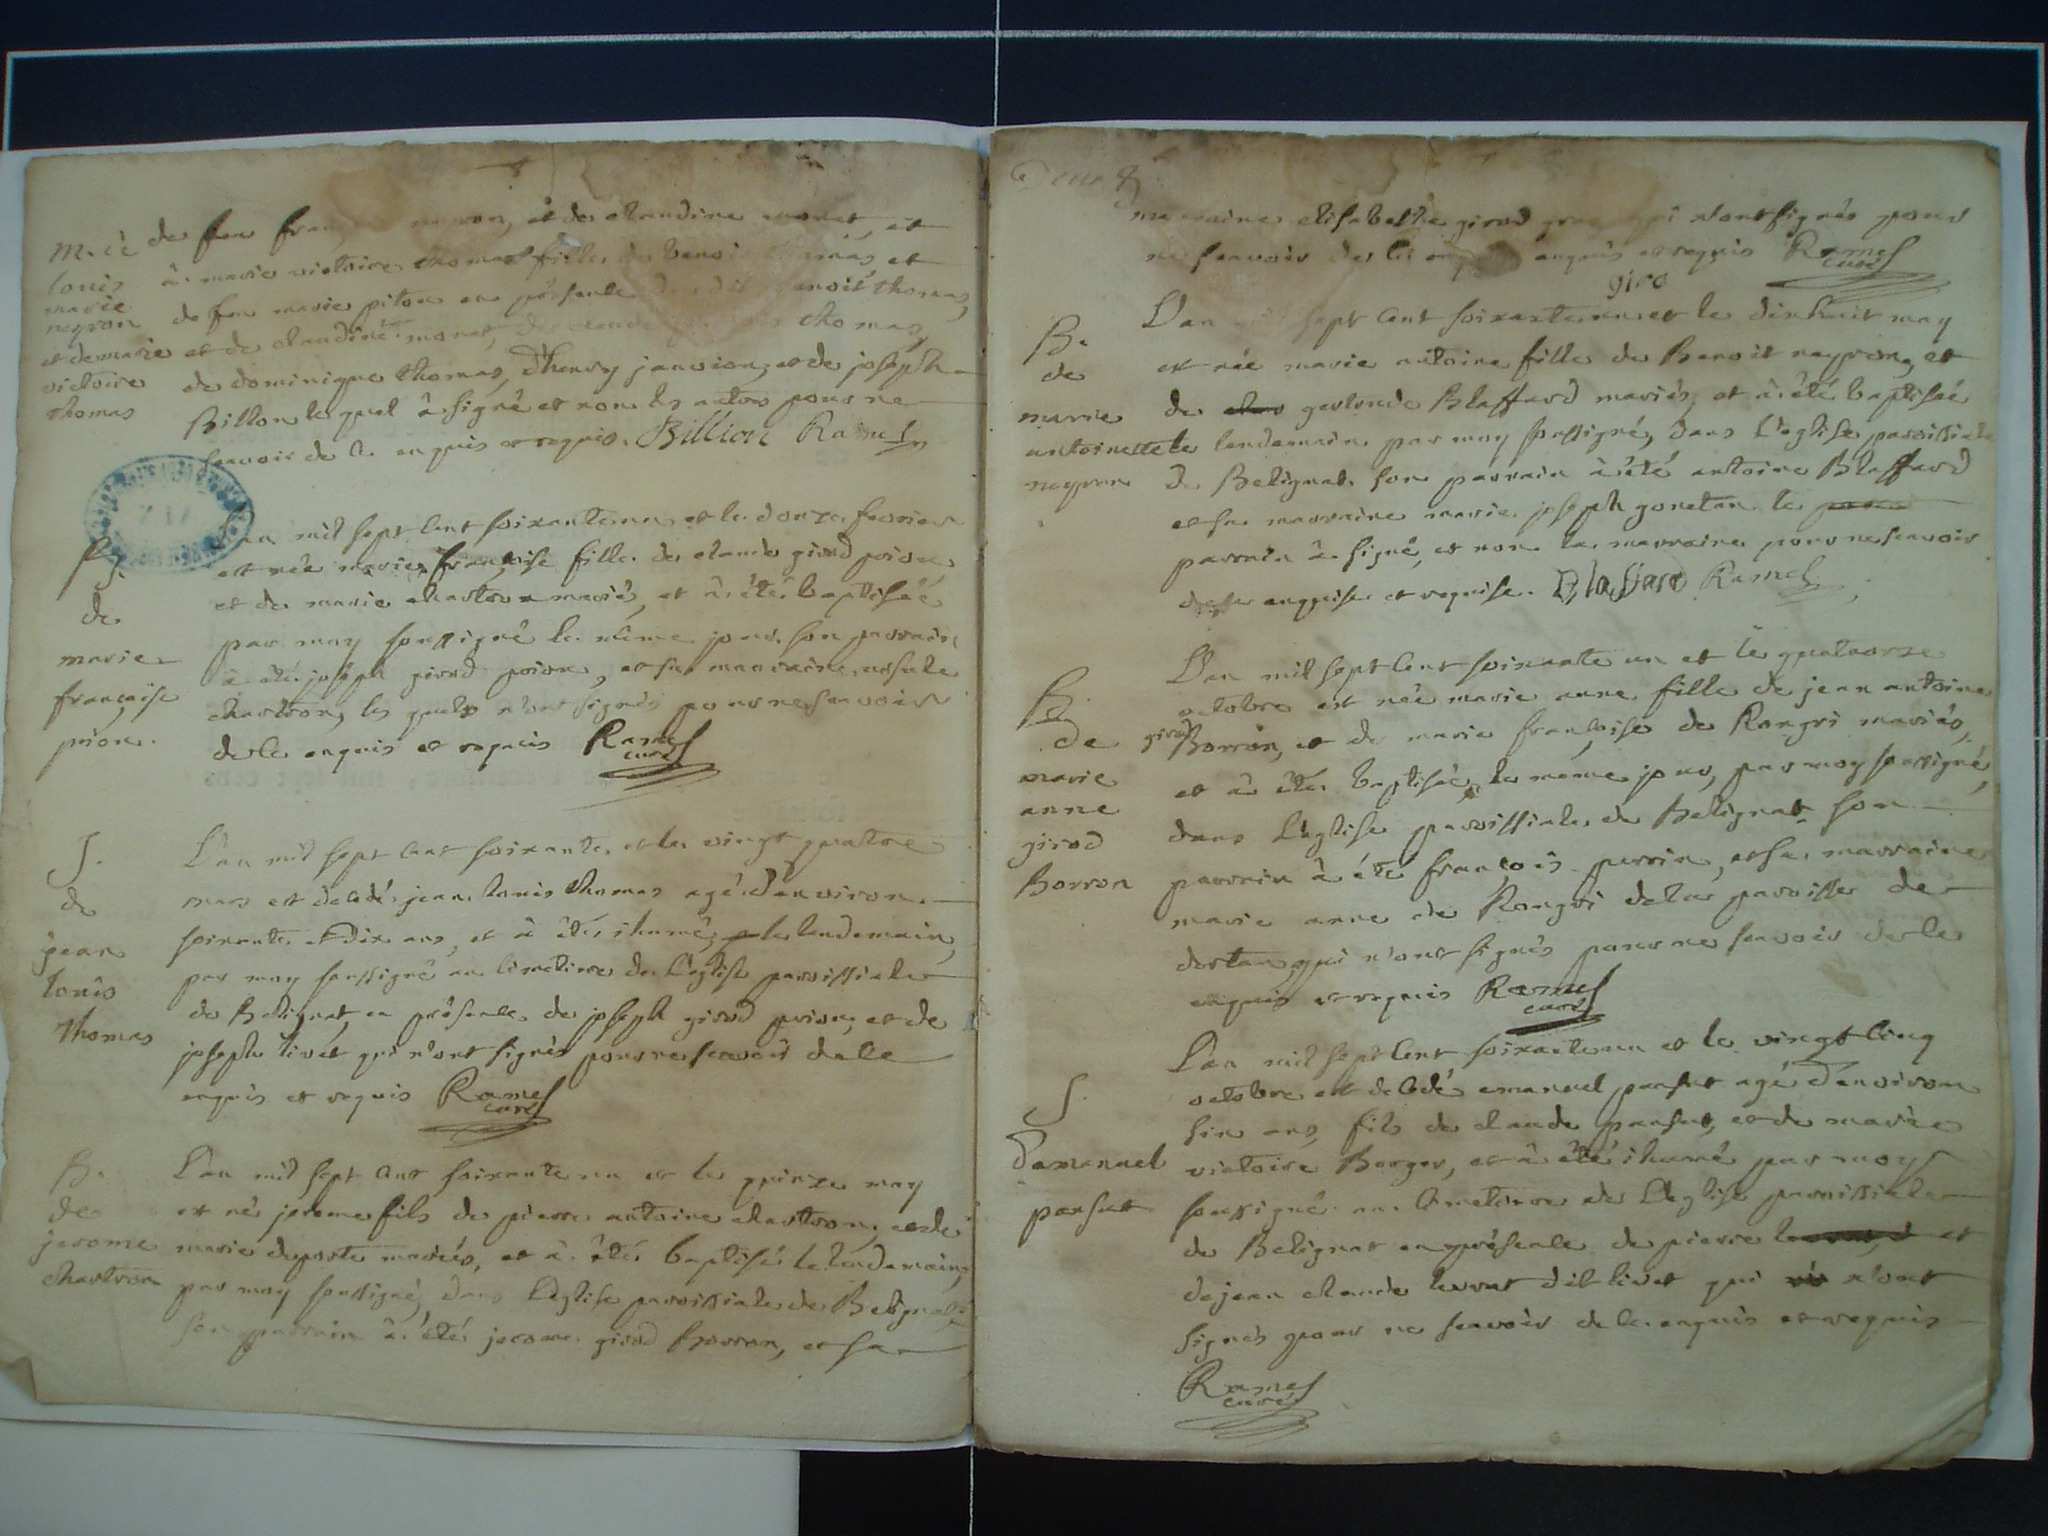 M. cè
louis
marie
neyron
et de marie
victoire
thomas
de feu françois neyron, et de claudine monet, et
à marie victoire thomas fille de benoit thomas et
de feu marie piton en présence benoit thomas,
et de claudine monet, de claude thomas,
de dominique thomas, d'henry janvion, et de joseph
Billion lequel à signé et non les autres pour ne
scavoir de ce enquis et requis. Billion Ramel
B.
de
marie
françoise
prion.
L'an mil sept cent soixante un et le douze fevrier
est née marie, françoise fille de claude girod prion
et de marie chartron mariés, et à été baptisée
par moy soussigné le même jour son parrain
à été joseph girod prion, et sa marraine ursule
chartron, les quels n'ont signés pour ne scavoir
de ce enquis et requis Ramel
curé
S.
de
jean
louis
thomas
L'an mil sept cent soixante et le vingt quatre
mars est décedé jean louis thomas agé d'environ
soixante et dix ans, et à été ihumé, le lendemain,
par moy soussigné au cimetiere de l'eglise parroissiale
de Belignat, en présence de joseph girod prion, et de
joseph livet qui n'ont signés pour ne scavoir de ce
enquis et requis Ramel
curé
B.
de
jerome
chartron
L'an mil sept cent soixante un et le quinze may
est né jerome fils de pierre antoine chartron, et de
marie duporte mariés, et à été baptisé le lendemain,
par moy soussigné, dans l'eglise parroissiale de Belignat,
son parrain à été jerome girod Borron, et sa
marraine elisabethe girod qui n'ont signés pour
ne scavoir de ce enquis et requis Ramel
curé
giro
B.
de
marie
antoinette
neyron
L'an sept cent soixante un et le dixhuit may
est née marie antoine fille de Benoit neyron, et
de gertrude Blaffard mariés, et à été baptisée
le lendemain par moy soussigné, dans l'eglise parroissiale
de Belignat. son parrain à été antoine Blaffard
et sa marraine marie joseph gonetan le
parrain à signé, et non la marraine pour ne scavoir
de ce enquise et requise. Blaffard Ramel
B.
de
marie
anne
girod
Borron
L'an mil sept cent soixante un et le quatorze
octobre est née marie anne fille de jean antoine
girod Borron, et de marie françoise de Rongri mariés,
et à été baptisée, le même jour, par moy soussigné,
dans l'eglise parroissiale de Belignat son
parrain à été françois perrin, et sa marraine
marie anne de Rongri de la paroisse de
dortan, qui n'ont signés pour ne scavoir de ce
enquis et requis Ramel
curé
S.
d'emanuel
pansut
L'an mil sept cent soixante un et le vingt cinq
octobre est decedé emanuel pansut agé d'environ
six ans, fils de claude pansut, et de marie
victoire Berger, et à été ihumé par moy
soussigné au cimetiere de l'eglise parroissiale
de Belignat en présence de pierre et
de jean claude levrat dit livet qui n'ont
signés pour ne scavoir de ce enquis et requis
Ramel
curé